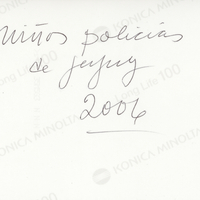 niños policías
de jujuy
2006
KONICA MINOLTA
Long Life 100
KONICA MINOLTA